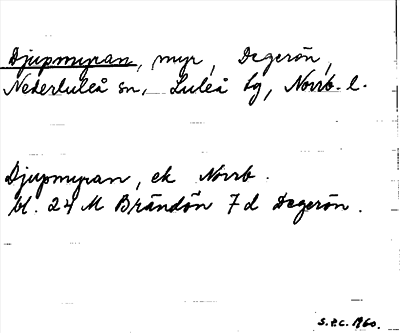 Djupmyran, myr, Degerön,
Nederluleå sn, Luleå tg, Norrb. l.
Djupmyran, ek Norrb.
bl. 24 M Brändön 7 d Degerön.
S.P.C. 1960.